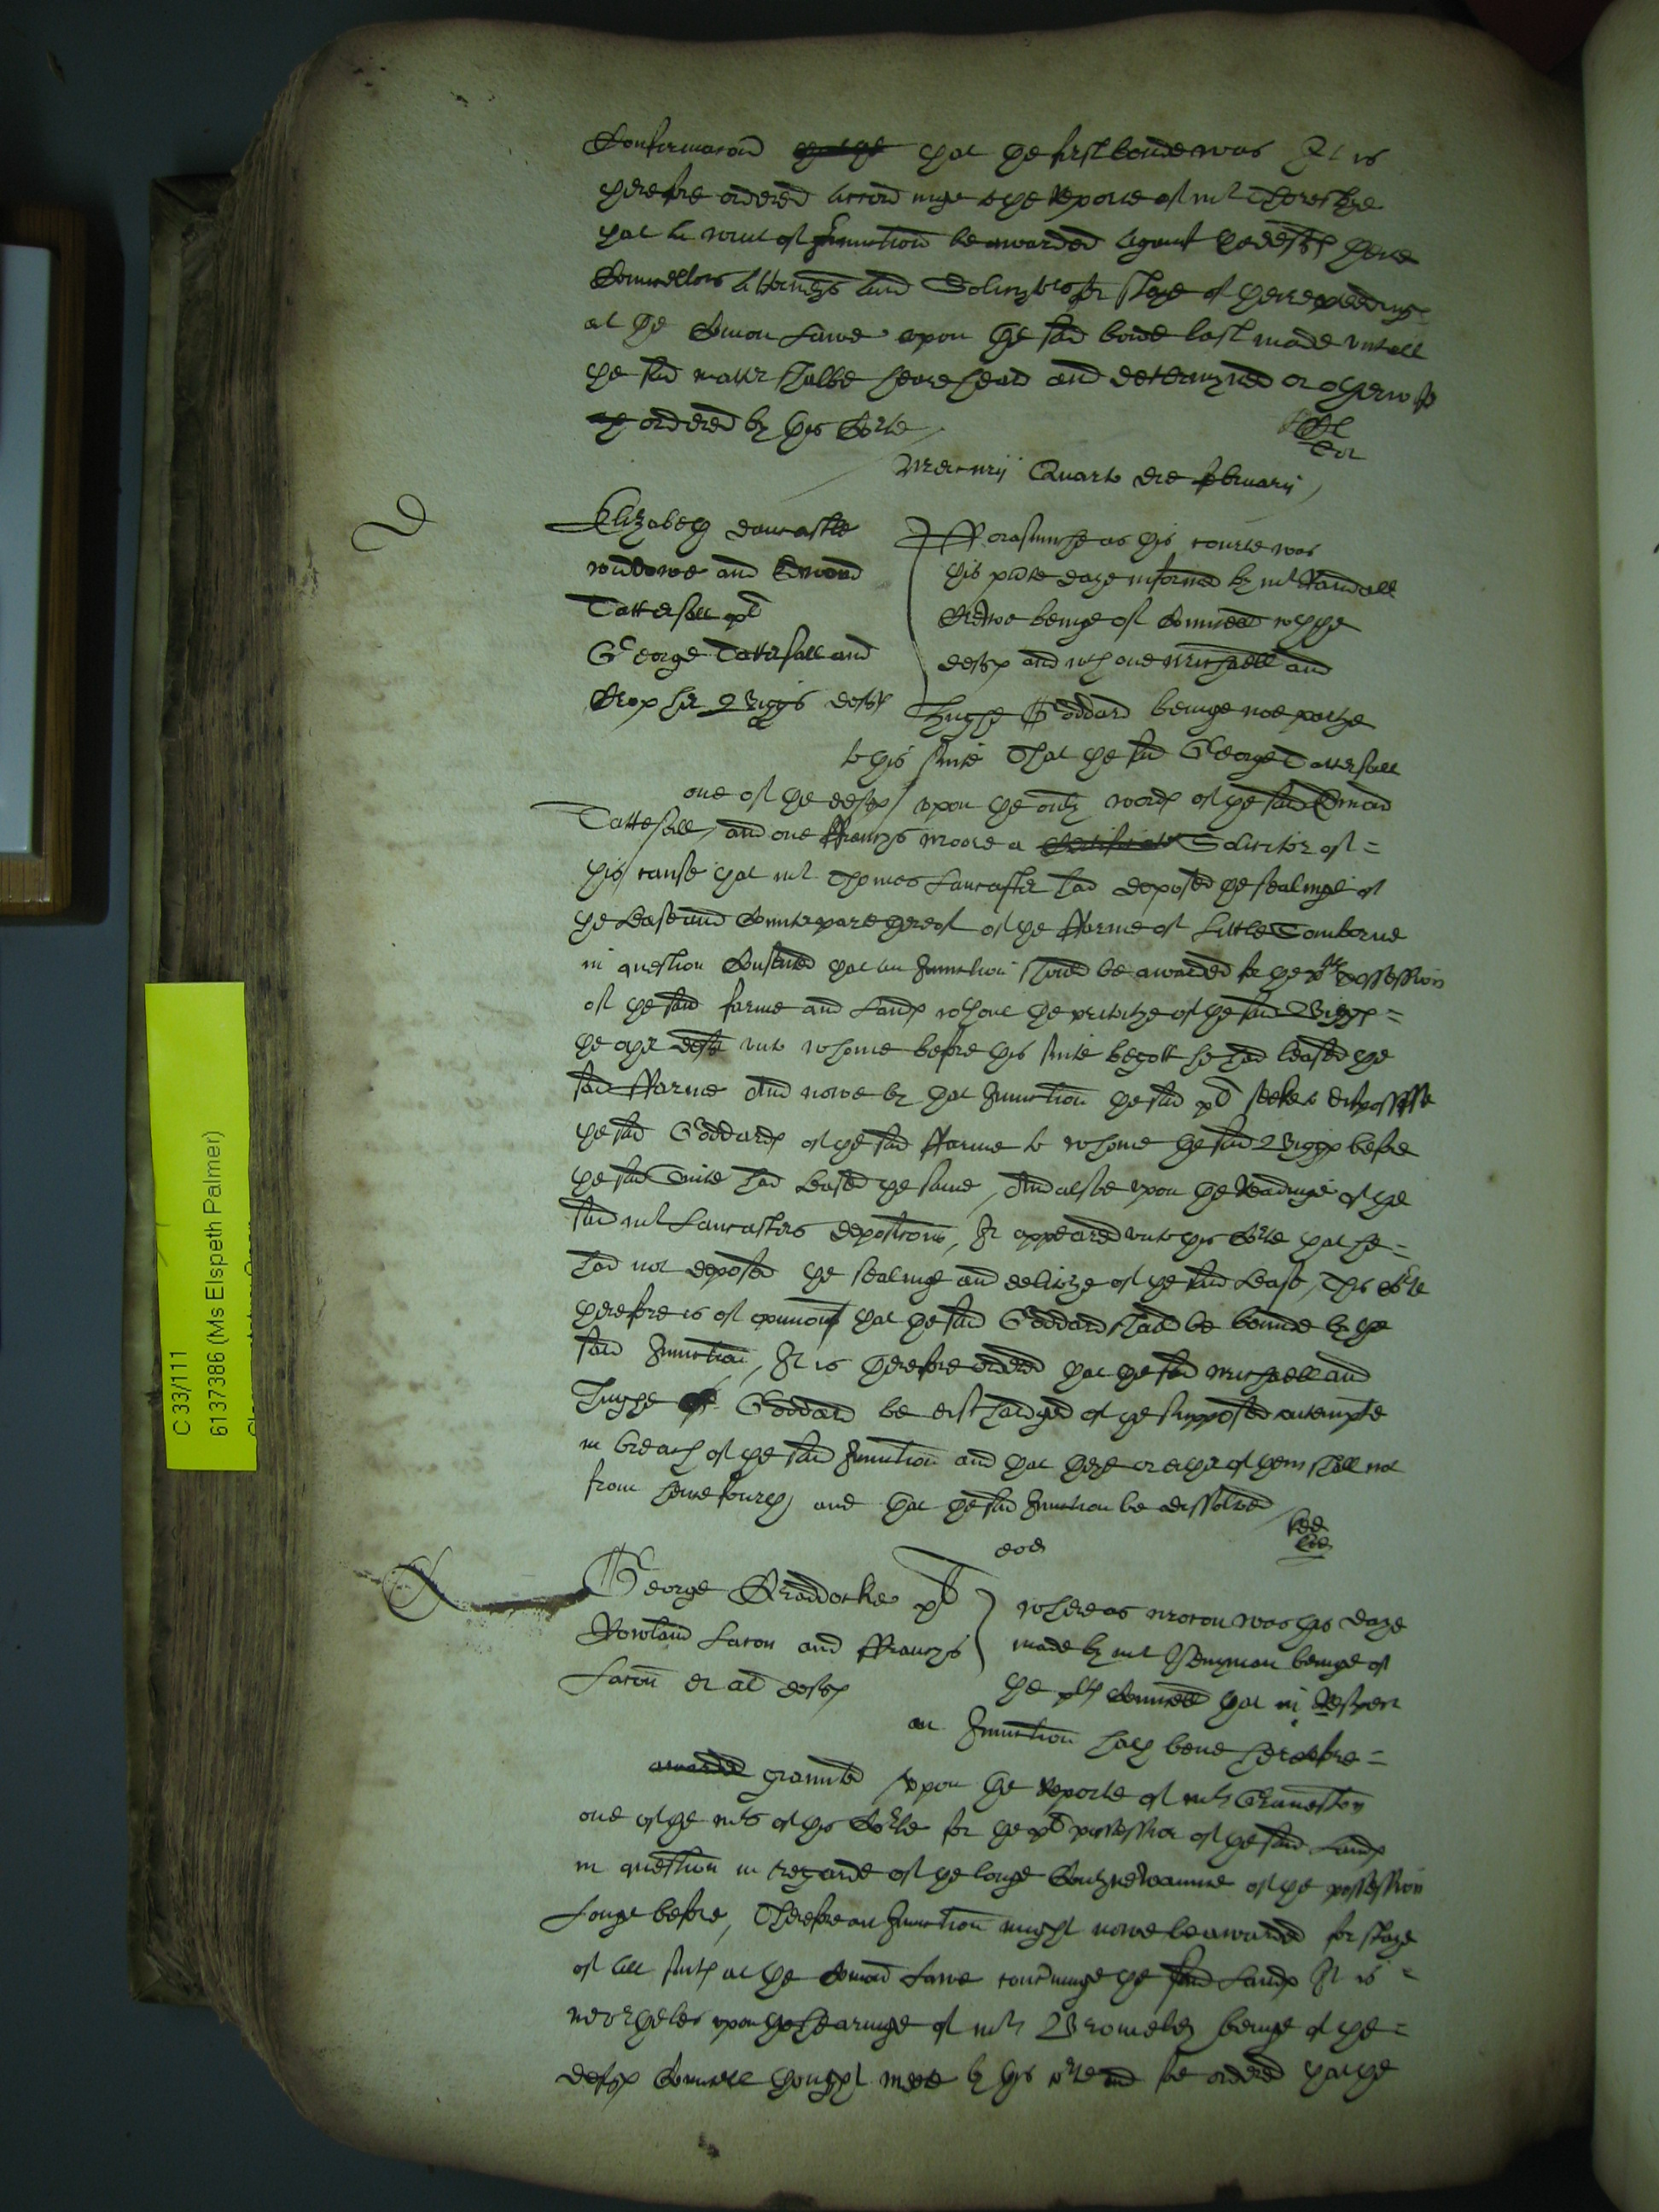 Confirmacoñ that the first bonde was It is
therefore ordered accordinge to the reporte of mr
that a writt of Iniunction be awarded against the deftes there
Councellors Attorneys and Solicytors for staye of there proceedings
at the Comon Lawe upon the said bonde last made untill
the said matter shalbe heare heard and determyned or otherwise
ordered by this Corte
Mercurij Quarto die ffebruarij
D
Elizabeth dancastle
widdowe and Edmond
Tattersall pl
George Tattersall and
Briggs deftes
fforasmuche as this courte was
this pnte daye informed by mr Randall
Crewe beinge of Councell wth the
deftes and wth one Michaell and
Hughe Goddard beinge noe partye
to this suite That the said George Tattersall
one of the deftes upon the only words of the said Edmond
Tattersall, and one ffrauncys moore a Solicitor of =
this cause that mr Thomas Lancaster had deposed the sealinge of
the Lease and Counterparte thereof of the ffarme of Little Tamborne
in question Consented that an Iniunction should be awarded for the pltes possession
of the said farme and Landes wthout the privitye of the said Briggs =
the other defte unto whome before this suite begonn he had leased the
said ffarme And nowe by that Iniunction the said pl seekes to dispossesse
the said Goddards of the said ffarme to whome the said Briggs before
the said Suite had Leased the same, And alsoe upon the Readinge of the
said mr Lancasters depositions, It appeared unto this Corte that he =
had not deposed the sealinge and delivrye of the said Lease, This Corte
therefore is of opinion that the said Goddard should be bounde by the
said Iniunction, It is therefore ordered that the said Michaell and
Hughe Goddard be discharged of the supposed contempte
in breach of the said Iniunction and that they or eyther of them shall not
from henceforth and that the said Iniunction be dissolved
eod
George Craddocke pl
Rowland Lacon and ffrauncys
Lacon et al deftes
Whereas mocon was this daye
made by mr beinge of
the pltes Councell that in Respect
an Iniunction hath bene heretofore =
awarded graunted upon the reporte of mr
one of the mrs of this Corte for the pl possession of the said Landes
in question in regarde of the longe Contynewaunce of the possession
Longe before, Therefore an Iniunction might nowe be awarded for staye
of all suites at the Comon Lawe concerninge the said Landes It is =
nevertheles upon the hearinge of mr Bromeley beinge of the =
deftes Councell thought meete by this Corte and soe ordered that the
C 33/111
6137386 (Ms Elspeth Palmer)